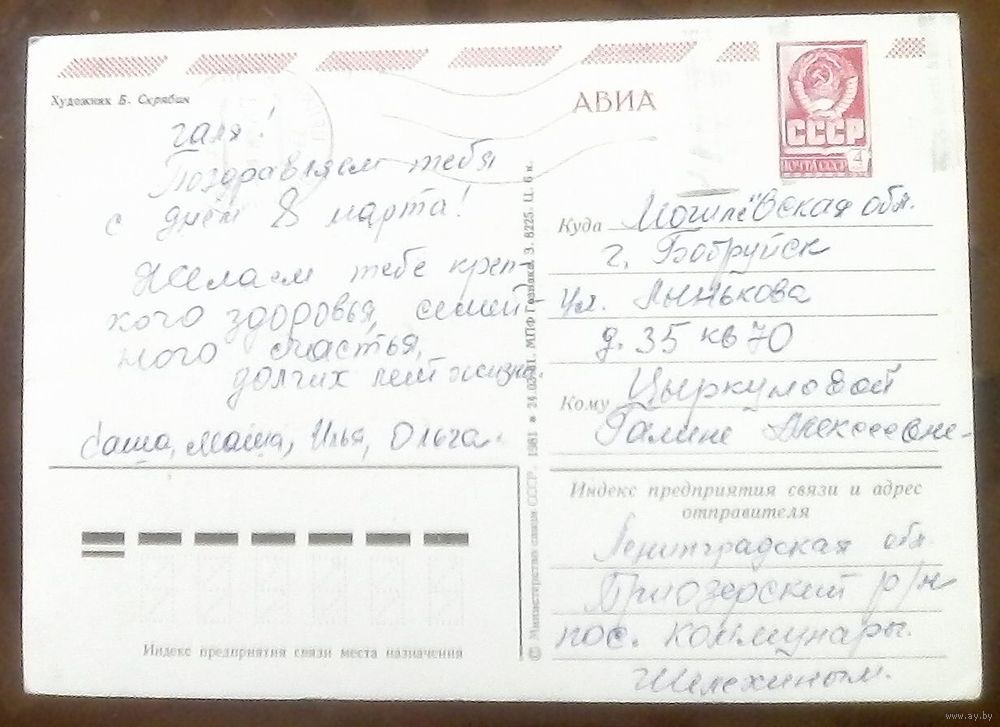 Художник Б. Скрябин
АВИА
СССР
ПОЧТА СССР
4
Галя!
Поздравляем тебя
с днём 8 марта!
Желаем тебе креп-
кого здоровья, семей
ного счастья,
долгих лет жизни.
Саша, Маша, Илья, Ольга.
Индекс предприятия связи места назначения
© Министерство связи СССР. 1981 МПФ Гознака. З. 6225. Ц. 6 к.
Куда Могилёвская обл.
г. Бобруйск
ул. Лынькова
д. 35 кв 70
Кому Цыркуловой
Галине Алексеевне
Индекс предприятия связи и адрес
отправителя
Ленинградская обл
Приозерский р/н
пос. Коммунары.
www.ay.by